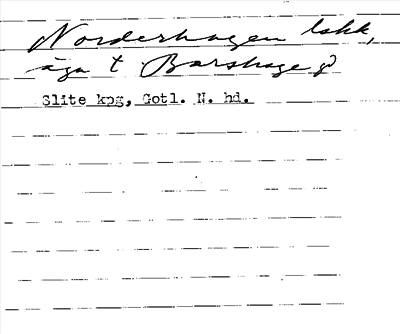 Norderhagen lskk,
äga t Barshage gd
Slite kpg, Gotl. N. hd.